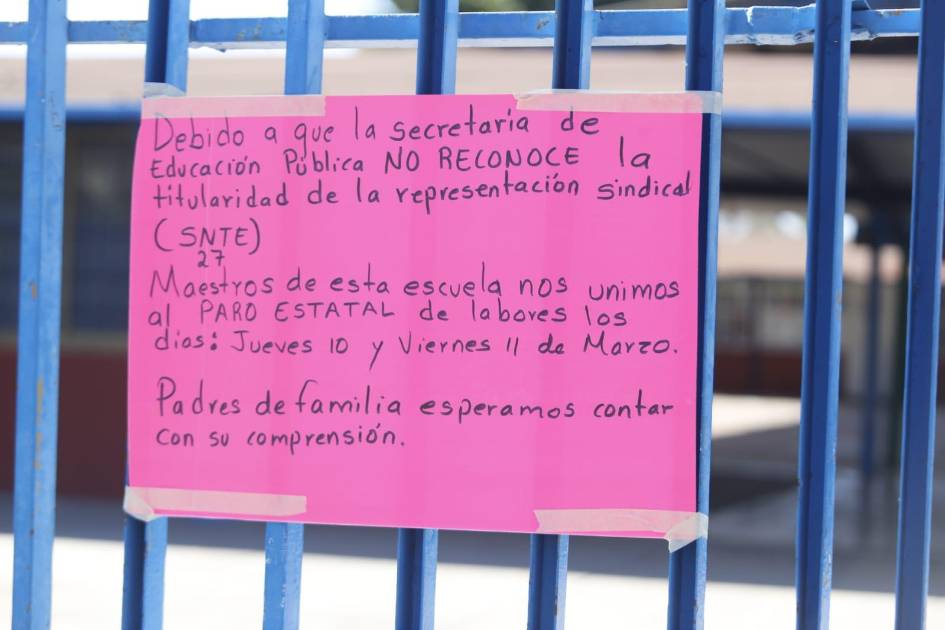 Debido a que la secretaria de
Educación Pública NO RECONOCE la
titularidad de la representación sindical
(SNTE)
27
Maestros de esta escuela nos unimos
al PARO ESTATAL de labores los
dias: Jueves 10 y Viernes 11 de Marzo.
Padres de familia esperamos contar
con su comprensión.